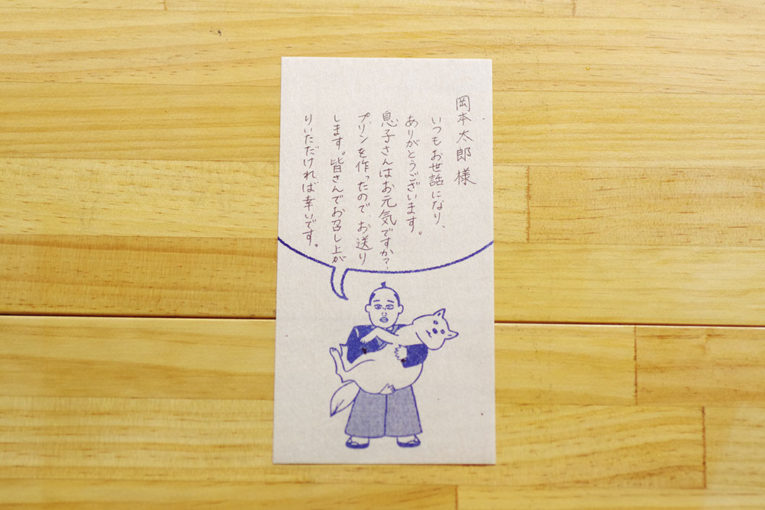 岡本太郎様
いつもお世話になり、
ありがとうございます。
息子さんはお元気ですか?
プリンを作ったので お送り
します。皆さんでお召し上が
りいただければ幸いです。